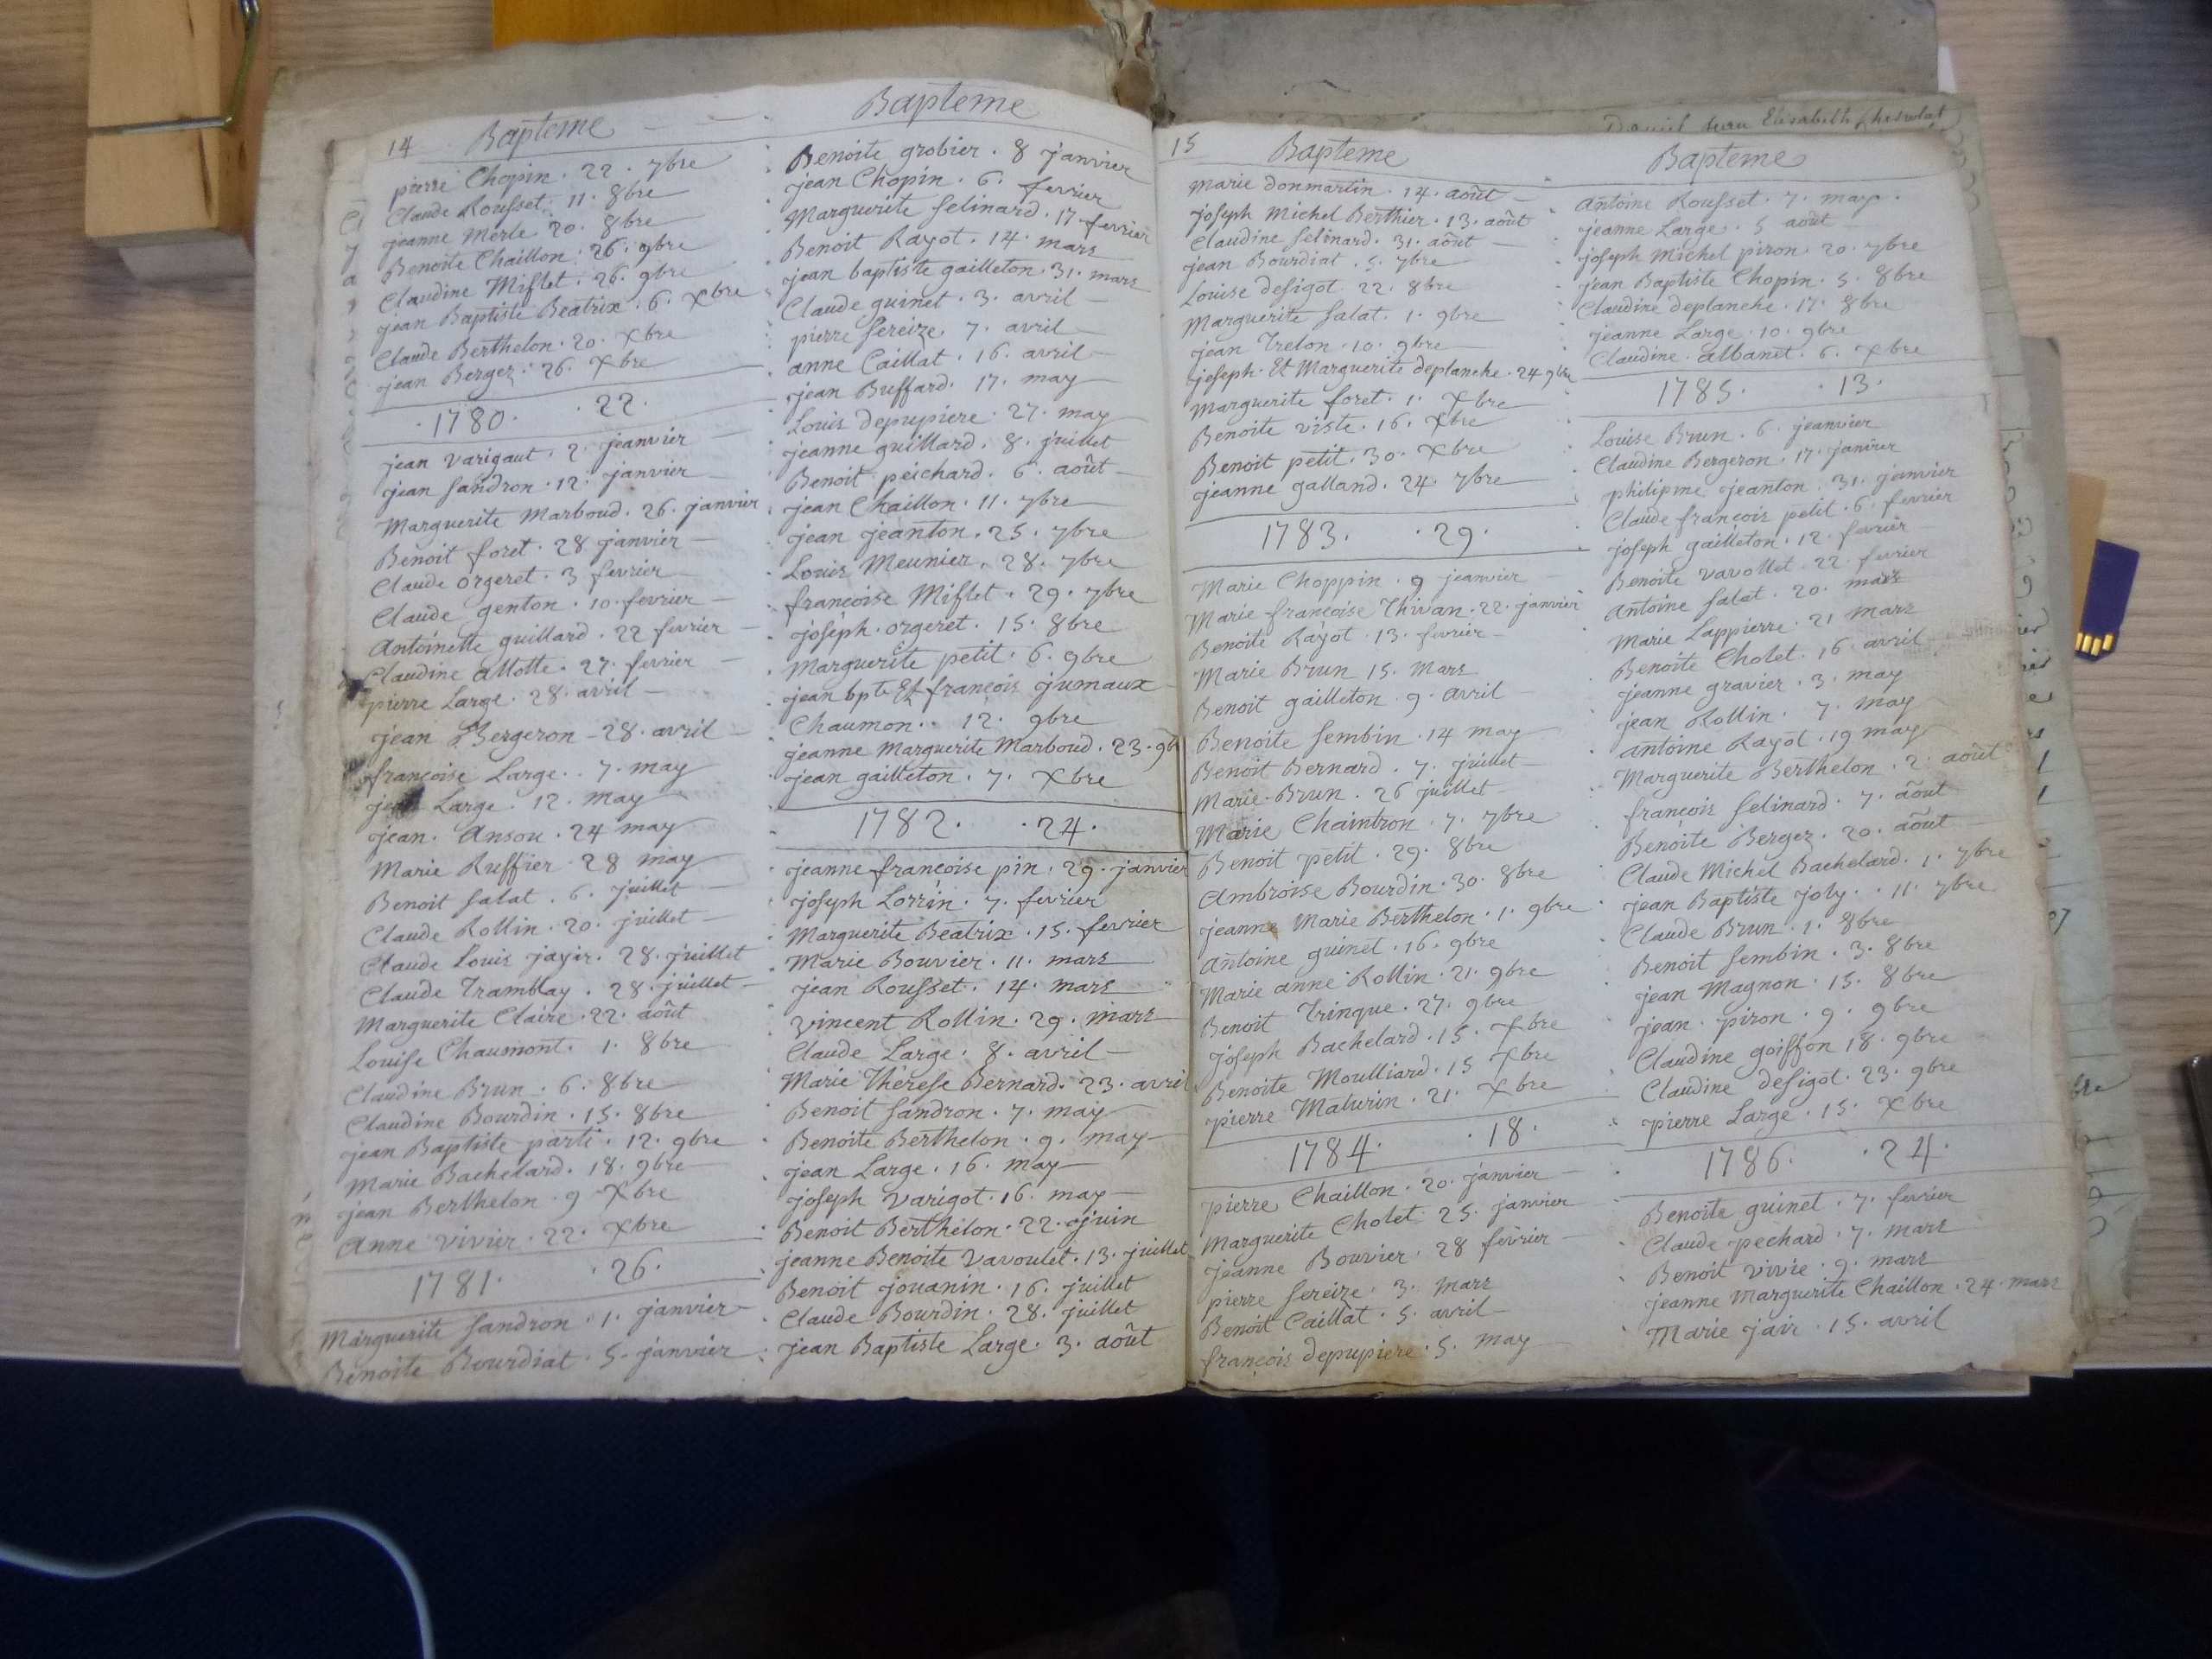 14 Bapteme
pierre Chopin . 22 . 7bre
Claude Rousset . 11 . 8bre
jeanne Merle 20 . 8bre
Benoite Chaillon . 26 . 9bre
Claudine Miflet . 26 . 9bre
jean Baptiste Beatrix . 6 . Xbre
Claude Berthelon . 20 . Xbre
jean Berger . 26 . Xbre
1780 . . 22 .
jean varigaut . 2 . jeanvier
jean sandron . 12 . janvier
Marguerite Marboud . 26 . janvier
Benoit foret . 28 janvier
Claude orgeret . 3 fevrier
Claude genton . 10 . fevrier
Antoinette guillard . 22 fevrier
Claudine allotte . 27 . fevrier
pierre Large . 28 . avril
jean Bergeron - 28 . avril
françoise Large . . 7 . may
jean Large . 12 . may
jean . Ansou . 24 may
Marie Ruffier . 28 may
Benoit salat . 6 . juillet
Claude Rollin . 20 . juillet
Claude Louis jayir . 28 . juillet
Claude Tramblay . 28 . juillet
Marguerite Claire . 22 . août
Louise Chaumont . 1 . 8bre
Claudine Brun . 6 . 8bre
Claudine Bourdin . 15 . 8bre
jean Baptiste parti . 12 . 9bre
Marie Bachelard . 18 . 9bre
jean Berthelon . 9 . Xbre
Anne vivier . 22 . Xbre
1781 . . 26 .
Marguerite sandron . 1 . janvier
Benoite Bourdiat . 5 . janvier
Bapteme
Benoite grobier . 8 janvier
jean Chopin . 6 . fevrier
Marguerite selinard . 17 . fevrier
Benoit Rayot . 14 . mars
jean baptiste gailleton . 31 . mars
Claude guinet . 3 . avril
pierre sereize . 7 . avril
anne Caillat . 16 . avril
jean Buffard . 17 . may
Louis depupiere . 27 . may
jeanne guillard . 8 . juillet
Benoit peichard . 6 . août
jean Chaillon . 11 . 7bre
jean jeanton . 25 . 7bre
Louis Meunier . 28 . 7bre
françoise Miflet . 29 . 7bre
joseph . orgeret . 15 . 8bre
Marguerite petit . 6 . 9bre
jean bpte Et françois jumaux
Chaumon . . 12 . 9bre
jeanne Marguerite Marboud . 23 . 9b
jean gailleton . 7 . Xbre
1782 . . 24 .
jeanne françoise pin . 29 . janvier
joseph Lorrin . 7 . fevrier
Marguerite Beatrix . 15 . fevrier
Marie Bouvier . 11 . mars
jean Rousset . 14 . mars
vincent Rollin . 29 . mars
Claude Large . 8 . avril
Marie Thérese Bernard . 23 . avril
Benoit sandron . 7 . may
Benoite Berthelon . 9 . may
jean Large . 16 . may
joseph varigot . 16 . may
Benoit Berthelon . 22 . juin
jeanne Benoite Vavoulet . 13 . juillet
Benoit jouanin . 16 . juillet
Claude Bourdin . 28 . juillet
jean Baptiste Large . 3 . août
15 Bapteme
Marie donmartin . 14 . août
joseph Michel Berthier . 13 . août
Claudine selinard . 31 . août
jean Bourdiat . 5 . 7bre
Louise desigot 22 . 8bre
Marguerite salat . 1 . 9bre
jean Trelon . 10 . 9bre
joseph . Et Marguerite deplanche . 24 9bre
Marguerite foret . 1 . Xbre
Benoite viste . 16 . Xbre
Benoit petit . 30 . Xbre
jeanne galland . 24 . 7bre
1783 . . 29 .
Marie Choppin . 9 jeanvier
Marie françoise Thivan . 22 . janvier
Benoite Rayot . 13 . fevrier
Marie Brun 15 . Mars
Benoit gailleton . 9 . avril
Benoite sembin . 14 may
Benoit Bernard . 7 . juillet
Marie . Brun . 26 juillet
Marie Chaintron . 7 . 7bre
Benoit petit . 29 . 8bre
Ambroise Bourdin . 30 . 8bre
jeanne Marie Berthelon . 1 . 9bre
Antoine guinet . 16 . 9bre
Marie anne Rollin . 21 . 9bre
Benoit Trinque . 27 . 9bre
joseph Bachelard . 15 . Xbre
Benoite Moulliard . 15 Xbre
pierre Maturin . 21 . Xbre
1784 . . 18 .
pierre Chaillon . 20 . janvier
Marguerite Cholet . 25 . janvier
jeanne Bouvier . 28 fevrier
pierre sereize . 3 . mars
Benoit Caillat . 5 . avril
françois depupiere . 5 . may
Bapteme
Antoine Rousset . 7 . may .
jeanne Large . 5 août
joseph Michel piron . 20 . 7bre
jean Baptiste Chopin . 5 . 8bre
Claudine deplanche . 17 . 8bre
jeanne Large . 10 . 9bre
Claudine . albanet . 6 . Xbre
1785 . . 13 .
Louise Brun . 6 . jeanvier
Claudine Bergeron . 17 . janvier
philipine jeanton . 31 . janvier
Claude françois petit . 6 . fevrier
joseph gailleton . 12 . fevrier
Benoite vavollet . 22 . fevrier
Antoine salat . 20 . mars
Marie Lappierre . 21 mars
Benoite Cholet . 16 . avril
jeanne gravier . 3 . may
jean Rollin . 7 . may
antoine Rayot . 19 may
Marguerite Berthelon . 2 . août
françois selinard . 7 . août
Benoite Berger . 20 . août
Claude Michel Bachelard . 1 . 7bre
jean Baptiste joly . . 11 . 7bre
Claude Brun . 1 . 8bre
Benoit sembin . 3 . 8bre
jean Magnon . 15 . 8bre
jean . piron . 9 . 9bre
Claudine goiffon 18 . 9bre
Claudine desigot . 23 . 9bre
pierre Large . 15 . Xbre
1786 . . 24 .
Benoite guinet . 7 . fevrier
Claude pechard . 7 . mars
Benoit vivie . 9 . mars
jeanne Marguerite Chaillon . 24 . mars
Marie jair . 15 . avril